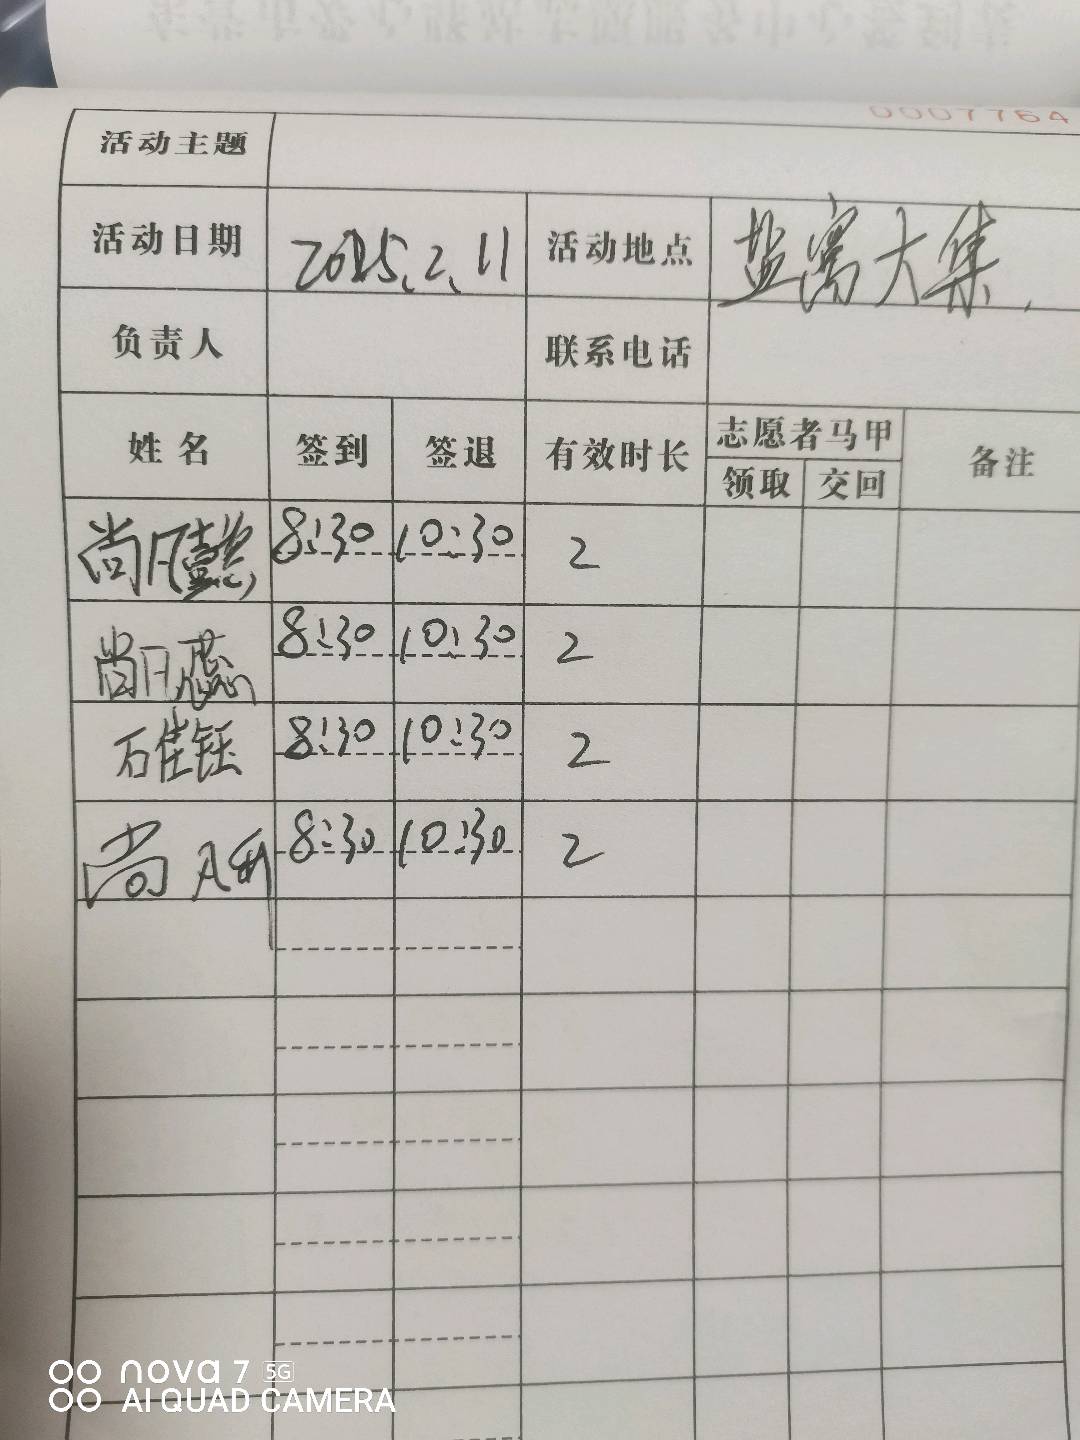 0007764
活动主题
活动日期 2025.2.11 活动地点 盐窝大集
负责人 联系电话
姓名 签到 签退 有效时长 志愿者马甲 备注
领取 交回
尚月懿 8:30 10:30 2
尚月蕊 8:30 10:30 2
石佳钰 8:30 10:30 2
尚 8:30 10:30 2
nova 7 5G
AI QUAD CAMERA